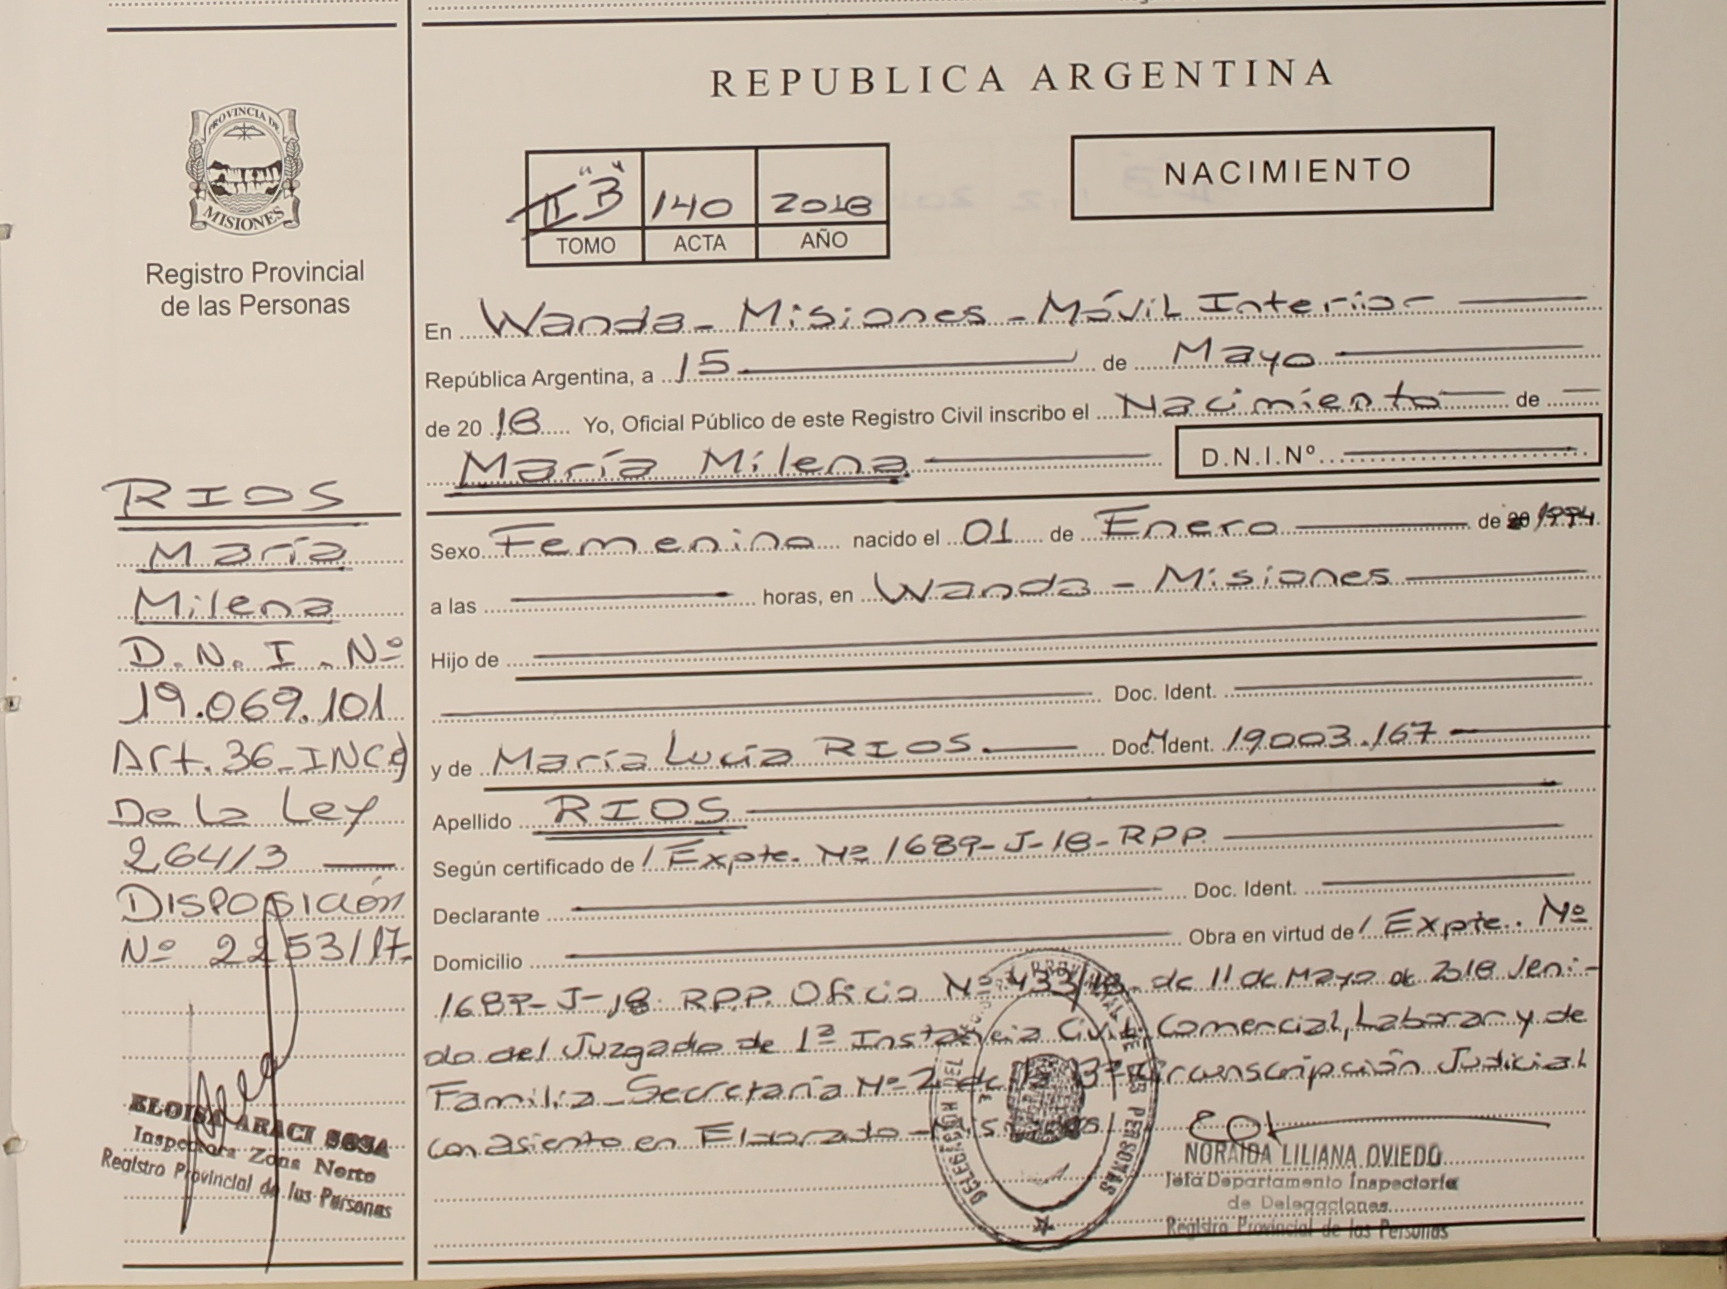 REPUBLICA ARGENTINA
PROVINCIA DE
MISIONES
Registro Provincial
de las Personas
II "B" 140 2018
TOMO ACTA AÑO
NACIMIENTO
En Wanda - Misiones - Móvil Interior
República Argentina, a 15 de Mayo
de 2018 Yo, Oficial Público de este Registro Civil inscribo el Nacimiento de
María Milena
D.N.I.Nº
Sexo Femenino nacido el 01 de Enero de 20 1994.
a las horas, en Wanda - Misiones
Hijo de
Doc. Ident.
y de María Lucía RIOS. Doc. Ident. 19003.167
Apellido RIOS
Según certificado de / Expte. Nº 1689-J-18-RPP.
Declarante Doc. Ident.
Domicilio Obra en virtud de / Expte. Nº
1689-J-18 RPP. Oficio Nº 433/18 de 11 de Mayo de 2018 Veni-
do del Juzgado de 1ª Instancia Civil, Comercial, Laboral y de
Familia - Secretaría Nº 2 de la 3ª Circunscripción Judicial
con asiento en Eldorado - Misiones
RIOS
María
Milena
D.N.I. Nº
19.069.101
Art. 36 - INC
De la Ley
26413
DISPOSICIÓN
Nº 2253/17-
ELOISA ARACI SOSA
Inspectora Zona Norte
Registro Provincial de las Personas
DELEGACION DEL REGISTRO PROVINCIAL DE LAS PERSONAS
NORAIDA LILIANA OVIEDO
Jefa Departamento Inspectoría
de Delegaciones
Registro Provincial de las Personas